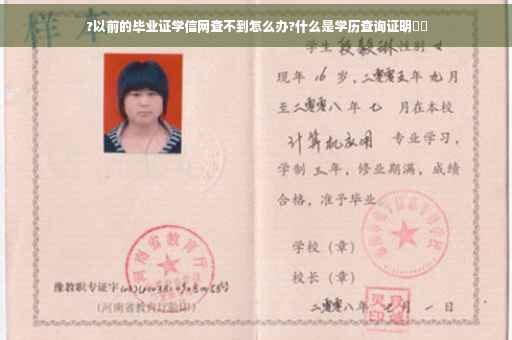 ?以前的毕业证学信网查不到怎么办?什么是学历查询证明
样本
学生段毅琳性别女
现年16岁,二零零五年九月
至二零零八年七月在本校
计算机应用 专业学习,
学制三年,修业期满,成绩
合格,准予毕业
学校(章)
校长(章)
二零零八年 月一日
河南省教育厅
豫教职专证字
(河南省教育厅验印)